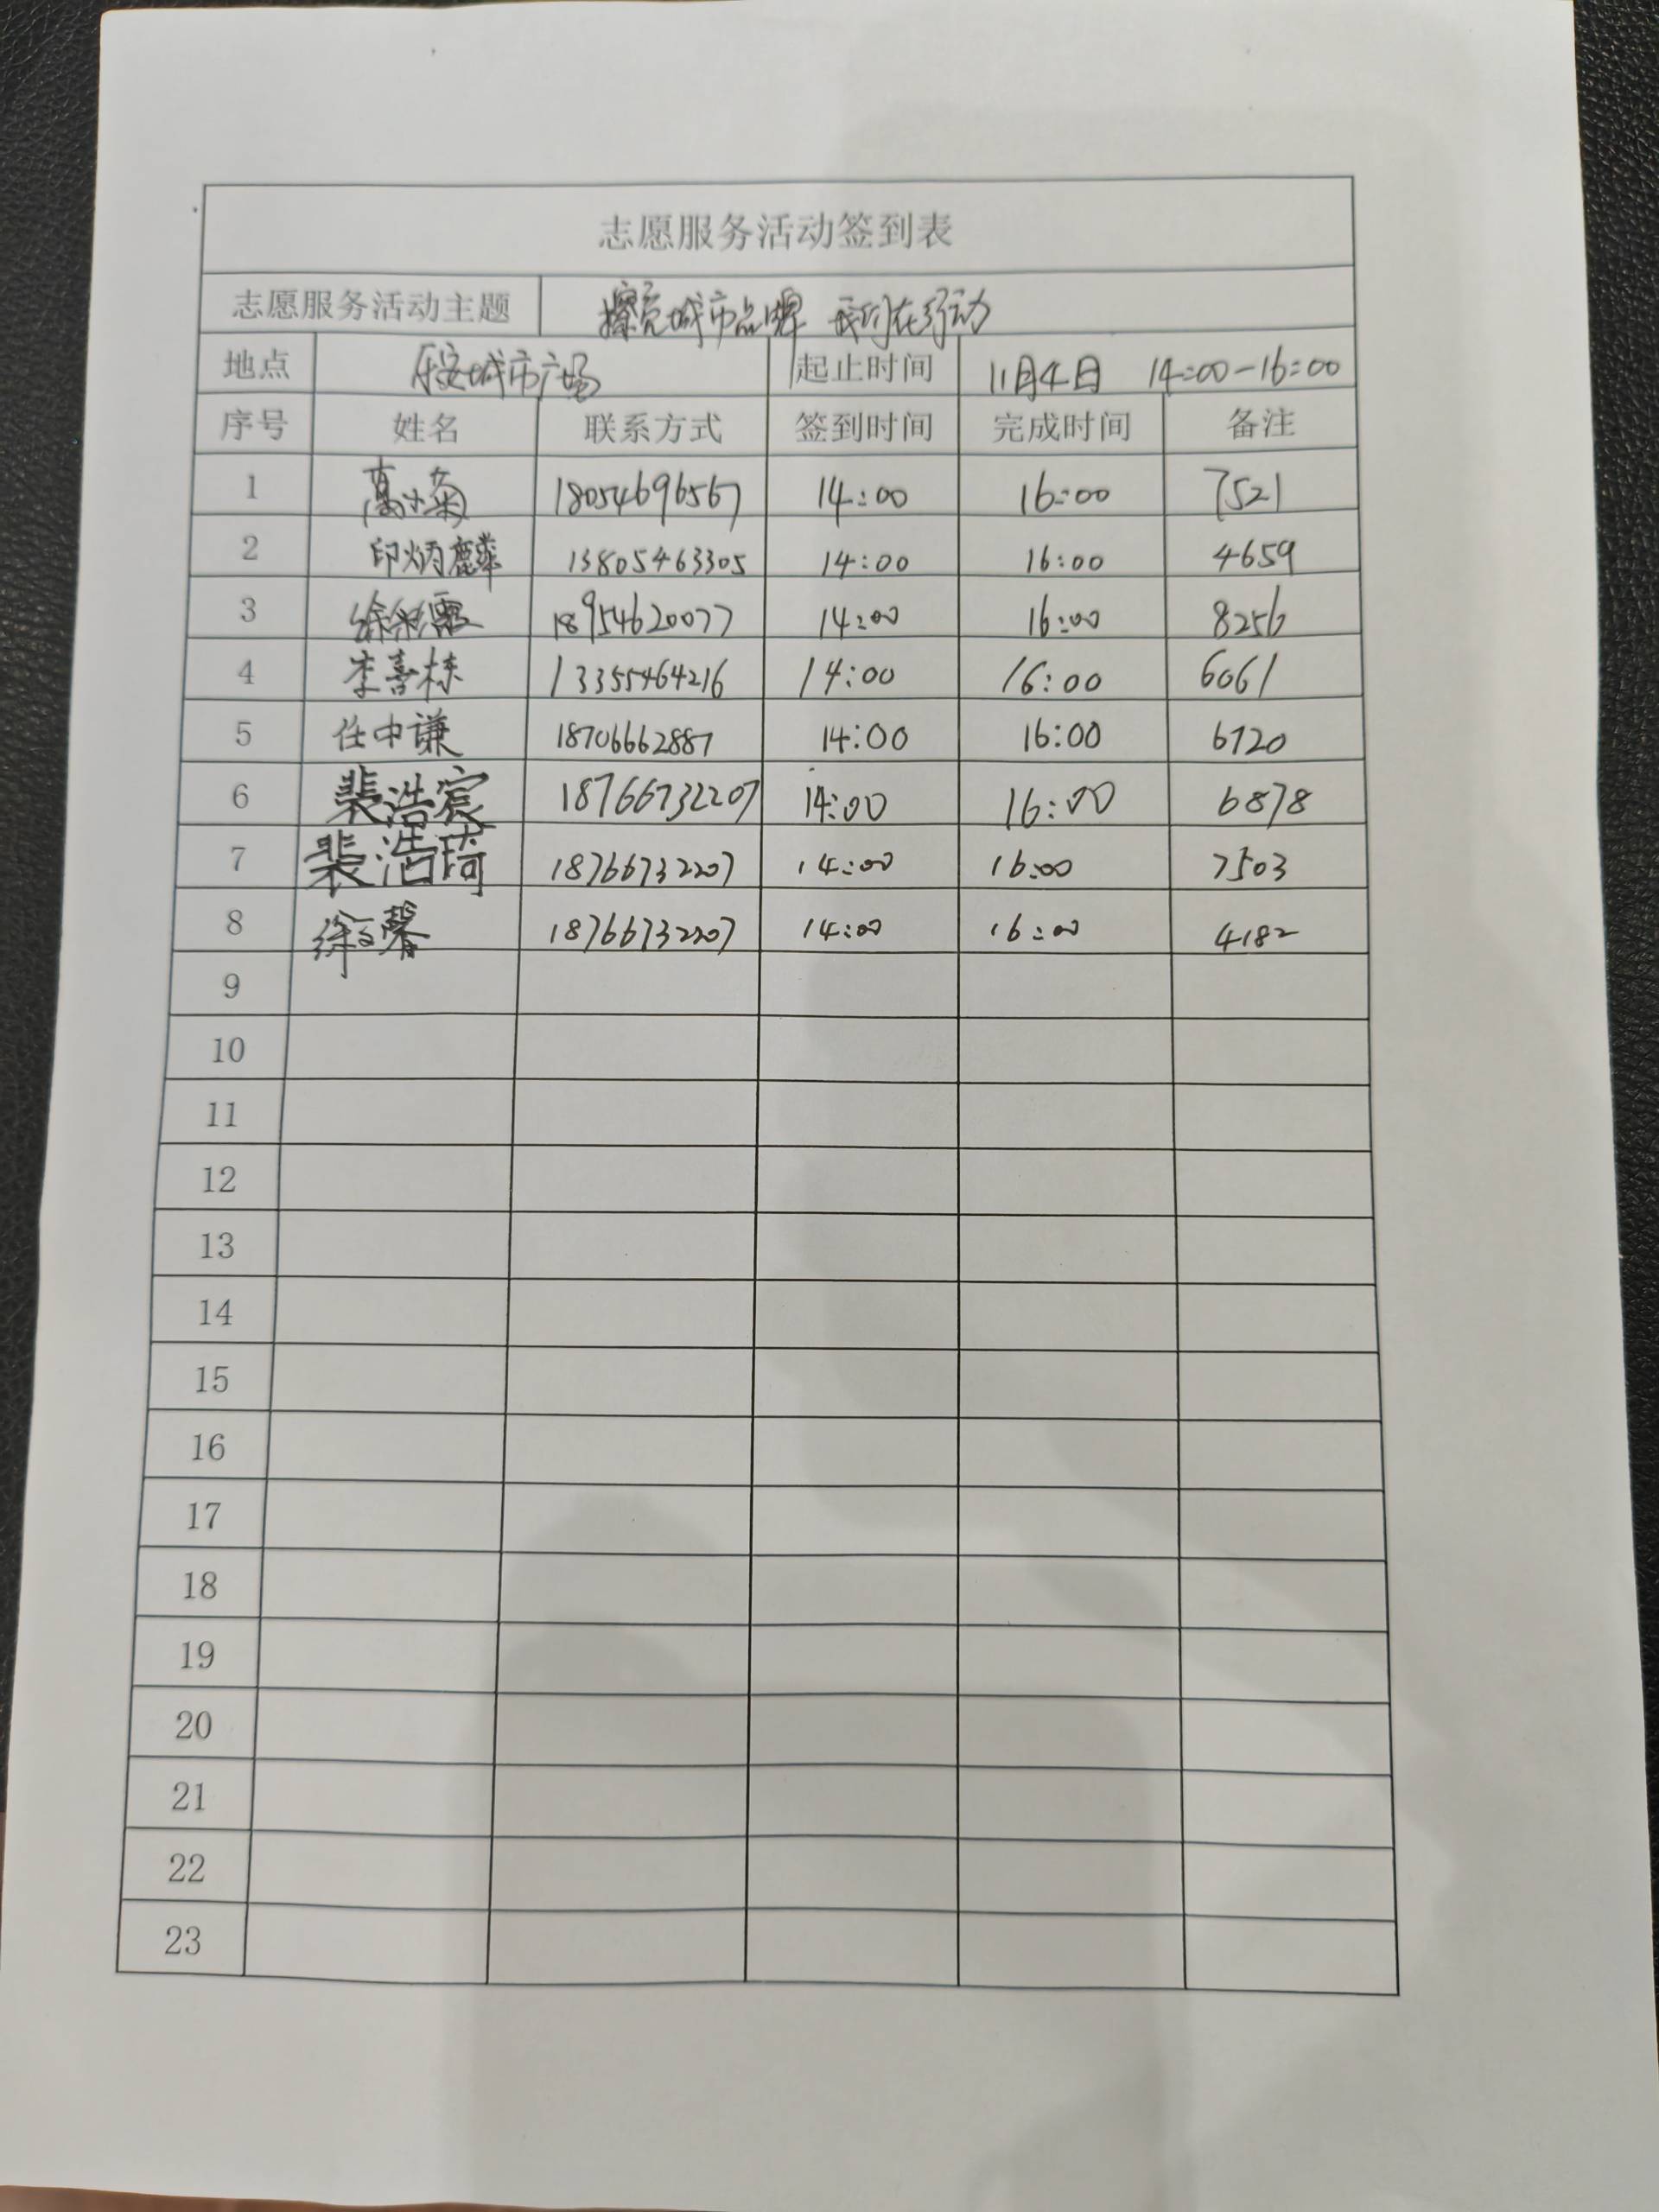 志愿服务活动签到表
志愿服务活动主题 擦亮城市品牌 我们在行动
地点 乐安城市广场 起止时间 11月4日 14:00-16:00
序号 姓名 联系方式 签到时间 完成时间 备注
1 高小菊 18054696567 14:00 16:00 7521
2 印炳麟 13805463305 14:00 16:00 4659
3 徐彩霞 18954620077 14:00 16:00 8256
4 李喜栋 13355464216 14:00 16:00 6061
5 任中谦 18706662887 14:00 16:00 6120
6 裴浩宸 18766732207 14:00 16:00 6878
7 裴浩琦 18766732207 14:00 16:00 7503
8 徐文馨 18766732207 14:00 16:00 4182
9
10
11
12
13
14
15
16
17
18
19
20
21
22
23